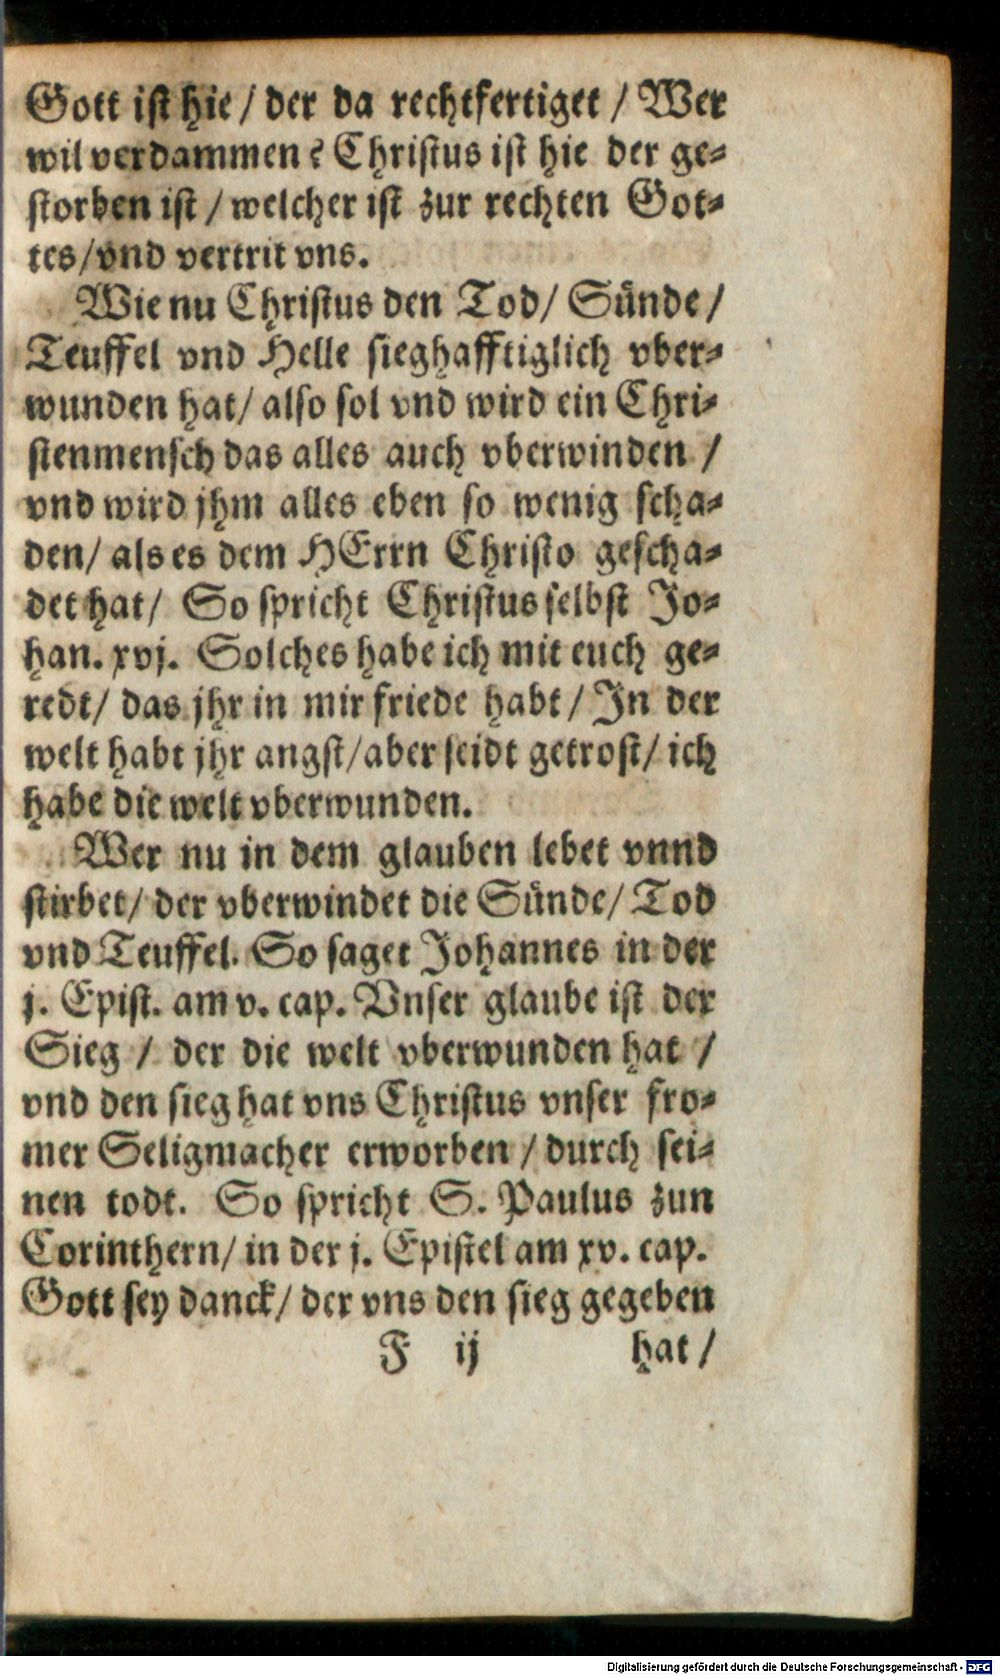 Gott ist hie / der da rechtfertiget / Wer
wil verdammen? Christus ist hie der ge-
storben ist / welcher ist zur rechten Got-
tes / vnd vertrit vns.
Wie nu Christus den Tod / Sünde /
Teuffel vnd Helle sieghafftiglich vber-
wunden hat / also sol vnd wird ein Chri-
stenmensch das alles auch vberwinden /
vnd wird jhm alles eben so wenig scha-
den / als es dem HErrn Christo gescha-
det hat / So spricht Christus selbst Jo-
han. xvj. Solches habe ich mit euch ge-
redt / das jhr in mir friede habt / In der
welt habt jhr angst / aber seidt getrost / ich
habe die welt vberwunden.
Wer nu in dem glauben lebet vnnd
stirbet / der vberwindet die Sünde / Tod
vnd Teuffel. So saget Johannes in der
j. Epist. am v. cap. Vnser glaube ist der
Sieg / der die welt vberwunden hat /
vnd den sieg hat vns Christus vnser fro-
mer Seligmacher erworben / durch sei-
nen todt. So spricht S. Paulus zun
Corinthern / in der j. Epistel am xv. cap.
Gott sey danck / der vns den sieg gegeben
F ij hat /
Digitalisierung gefördert durch die Deutsche Forschungsgemeinschaft - DFG